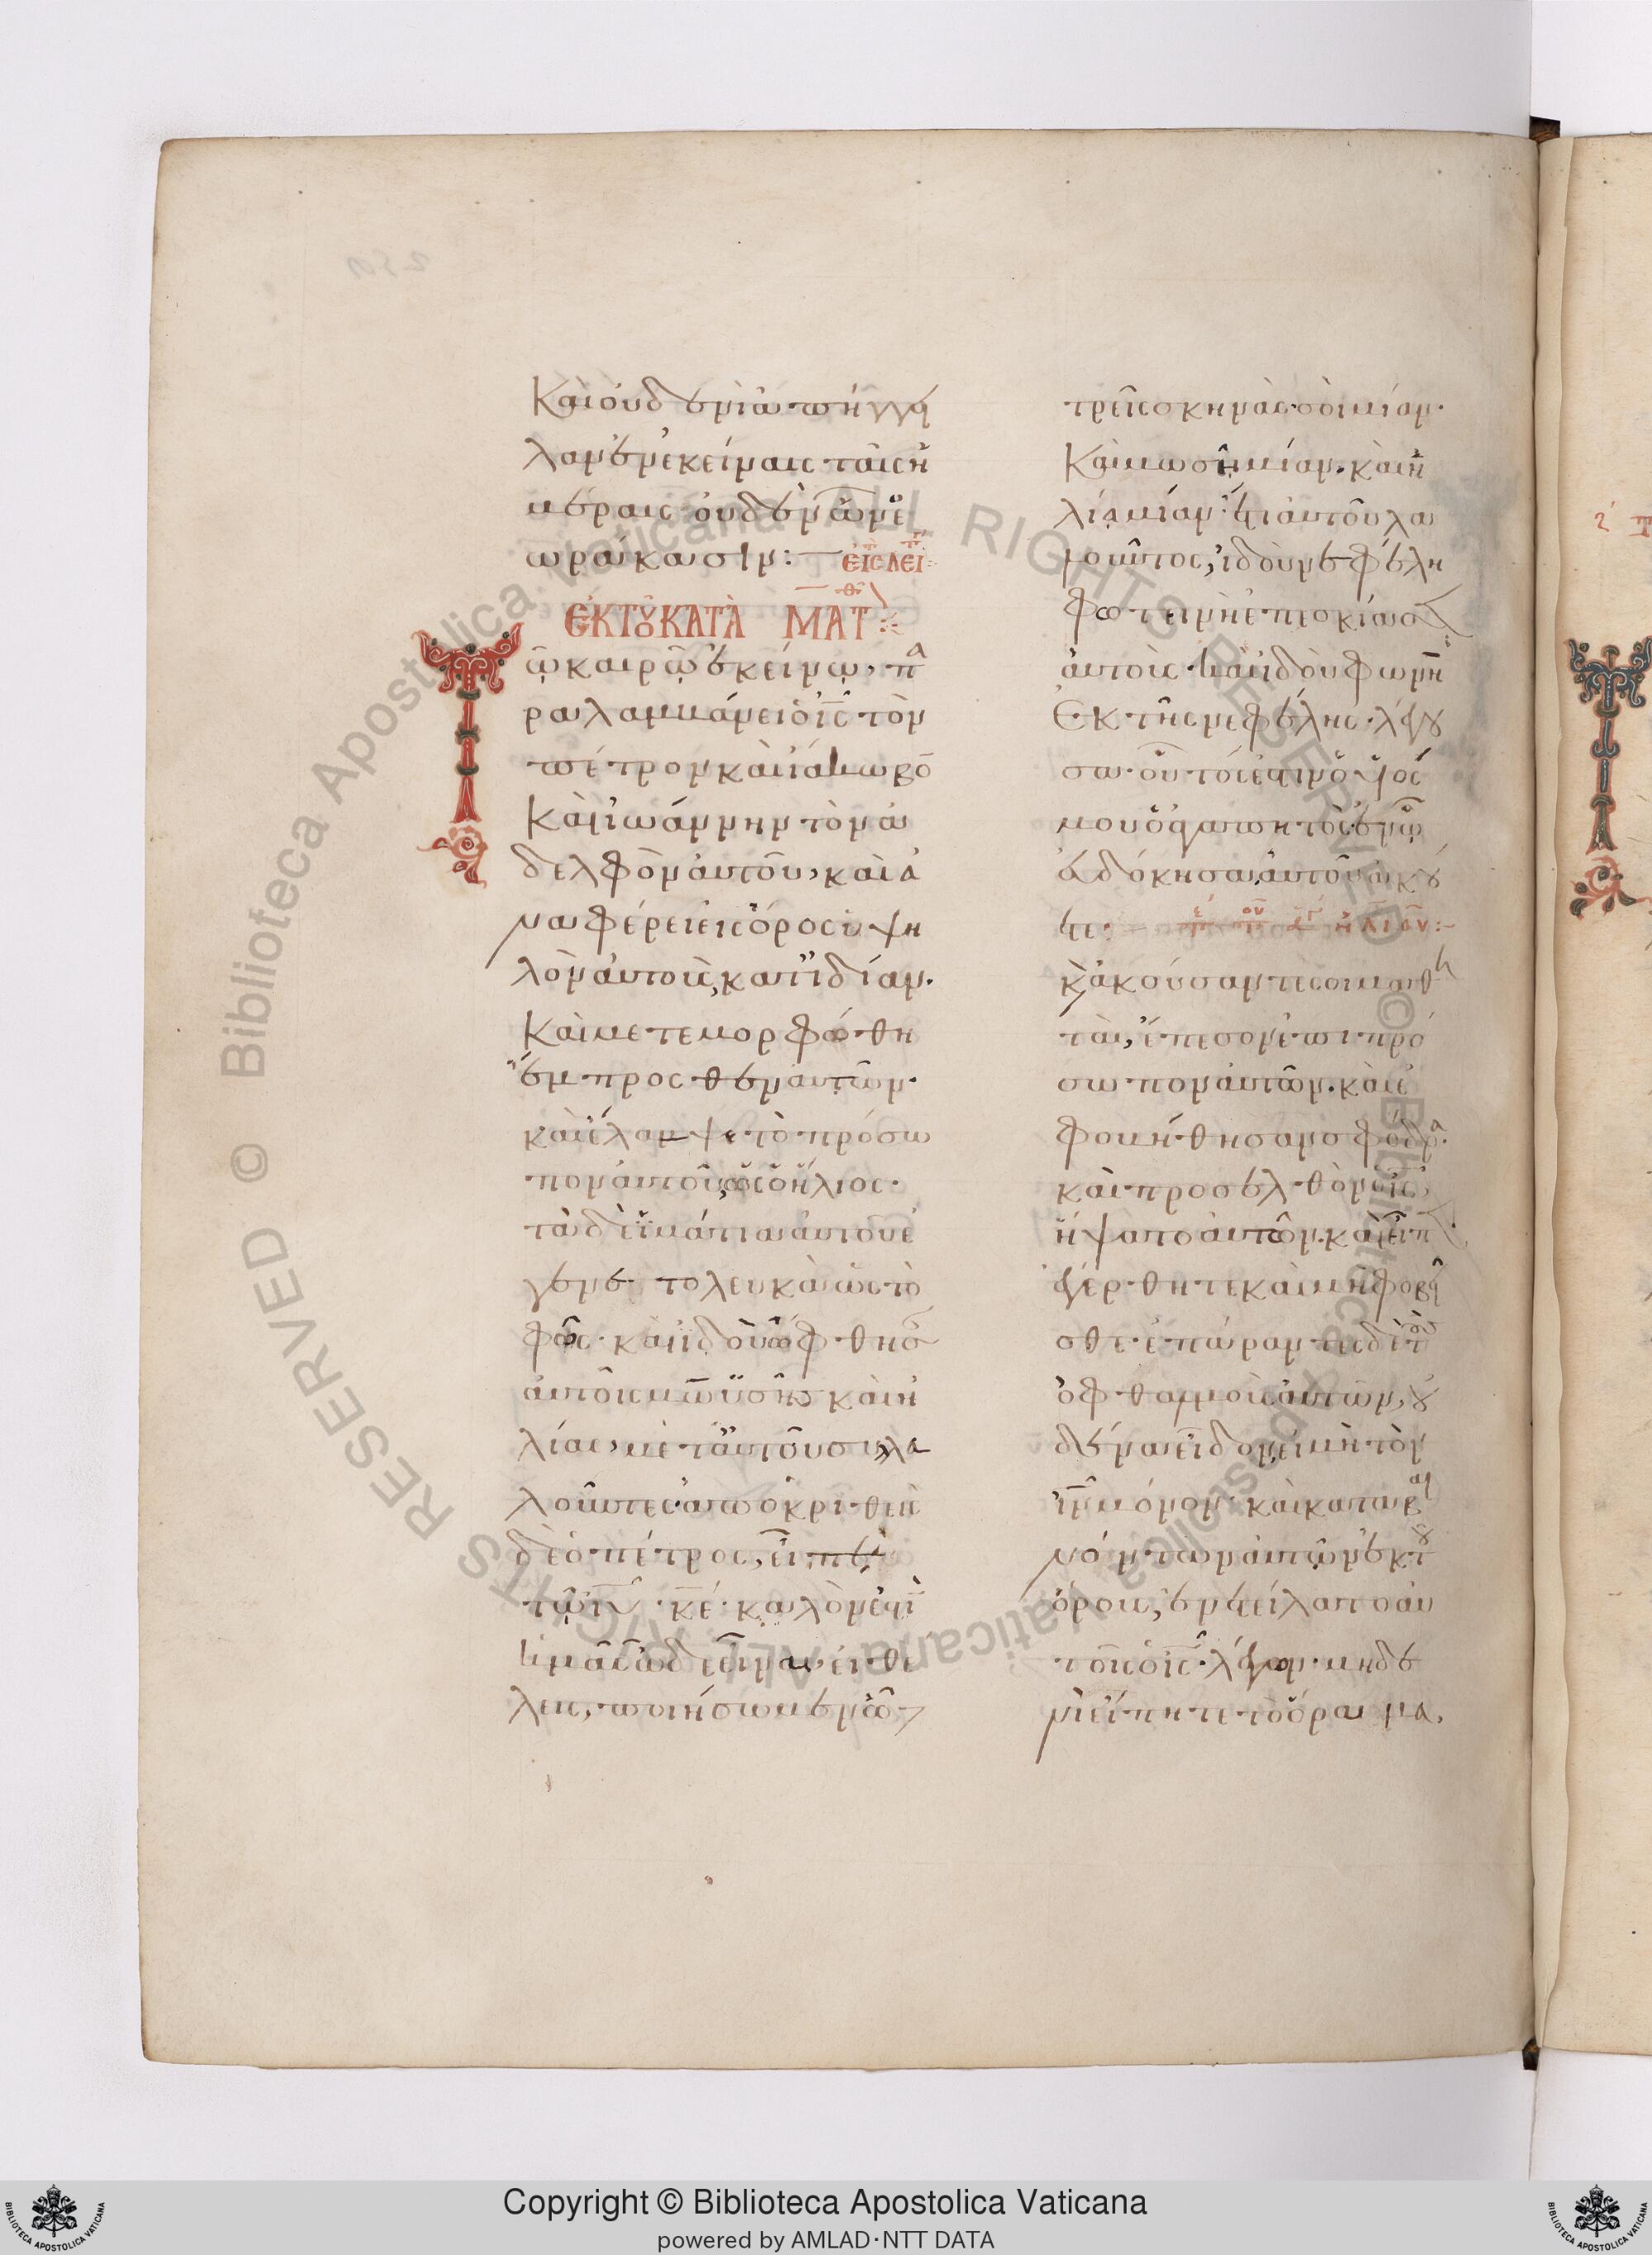 Καὶ οὐδενὶ ἀπήγγει
λαν ἐν ἐκείναις ταῖς ἡ
μέραις οὐδὲν ὧν ἑ
ωράκασιν:
ἘΚ ΤΟΥ ΚΑΤᾺ ΜΑΤΘ
Τῷ καιρῷ ἐκείνῳ, πα
ραλαμβάνει ὁ ἰς τὸν
πέτρον καὶ ἰάκωβον
Καὶ ἰωάννην τὸν ἀ
δελφὸν αὐτοῦ, καὶ ἀ
ναφέρει εἰς ὄρος ὑψη
λὸν αὐτοὺς κατ ἰδίαν.
Καὶ μετεμορφώθη
ἔμπροσθεν αὐτῶν.
καὶ ἔλαμψε τὸ πρόσω
πον αὐτοῦ ὡς ὁ ἥλιος.
τὰ δὲ ἱμάτια αὐτοῦ ἐ
γένετο λευκὰ ὡς τὸ
φῶς. καὶ ἰδοὺ ὤφθησαν
αὐτοῖς μωϋσῆς καὶ ἡ
λίας, μετ αὐτοῦ συλλα
λοῦντες. ἀποκριθεὶς
δὲ ὁ πέτρος, εἶπεν
τῷ ἰυ. κε. καλόν ἐστιν
ἡμᾶς ὧδε εἶναι. εἰ θέ
λεις, ποιήσωμεν ὧδε
τρεῖς σκηνάς. σοὶ μίαν.
Καὶ μωσῆ μίαν. καὶ ἡ
λίᾳ μίαν. ἔτι αὐτοῦ λα
λοῦντος, ἰδοὺ νεφέλη
φωτεινὴ ἐπεσκίασεν
αὐτούς. καὶ ἰδοὺ φωνὴ
Ἐκ τῆς νεφέλης λέγου
σα. οὗτός ἐστιν ὁ υἱός
μου ὁ ἀγαπητὸς ἐν ᾧ
εὐδόκησα αὐτοῦ ἀκού
ετε:
Κὰὶ ἀκούσαντες οἱ μαθη
ταὶ, ἔπεσον ἐπι πρό
σωπον αὐτῶν. καὶ ἐ
φοβήθησαν σφόδρα.
καὶ προσελθὸν ὁ ἰς,
ἥψατο αὐτῶν. καὶ εἶπεν
ἐγέρθητε καὶ μὴ φοβεῖ
σθε. ἐπάραντες δὲ τοὺς
ὀφθαλμοὺς αὐτῶν, οὐ
δένα εἶδον, εἰ μὴ τὸν
ἰν μόνον. καὶ καταβαι
νόντων αὐτῶν ἐκ τοῦ
ὄρους, ἐνετείλατο αὐ
τοῖς ὁ ἰς λέγων. μηδε
νὶ εἴπητε τὸ ὅραμα,